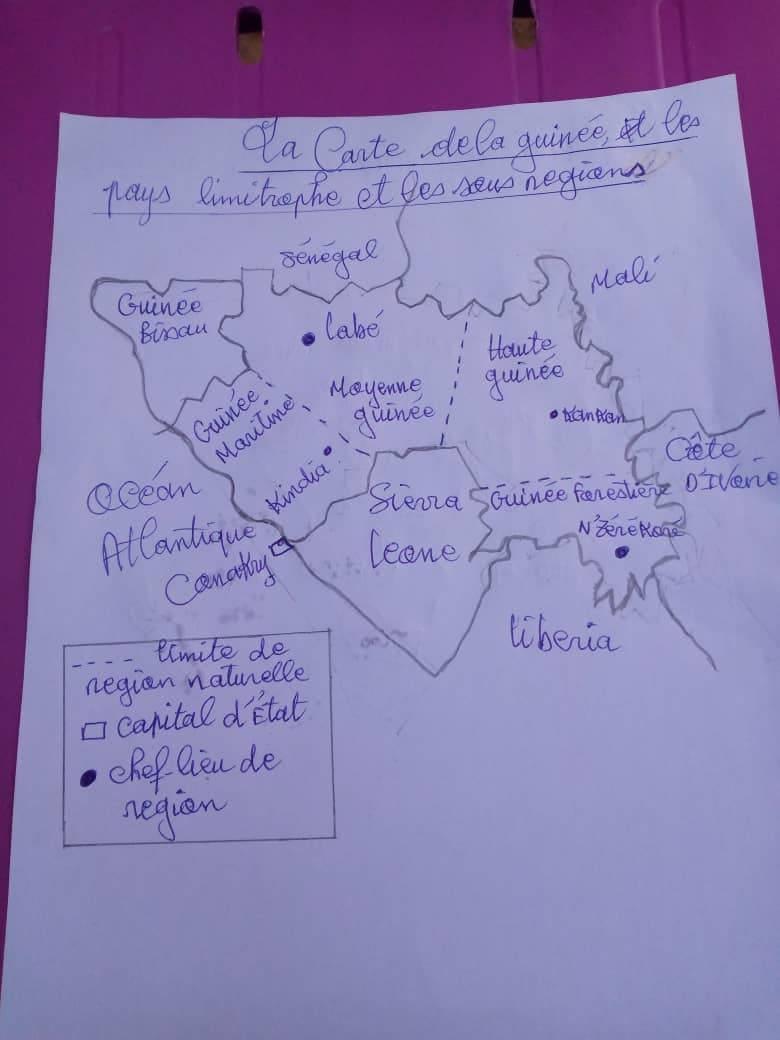 La Carte de la guinée, et les
pays limitrophe et les sous regions
Sénégal
Mali
Guinée
Bissau
Labé
Haute
guinée
Moyenne
guinée
Guinée
Maritime
KanKan
Côte
D'Ivoire
Kindia
Océan
Atlantique
Sierra
Leone
Guinée Forestière
N'ZéréKoré
Conakry
liberia
---- limite de
region naturelle
capital d'État
chef-lieu de
region